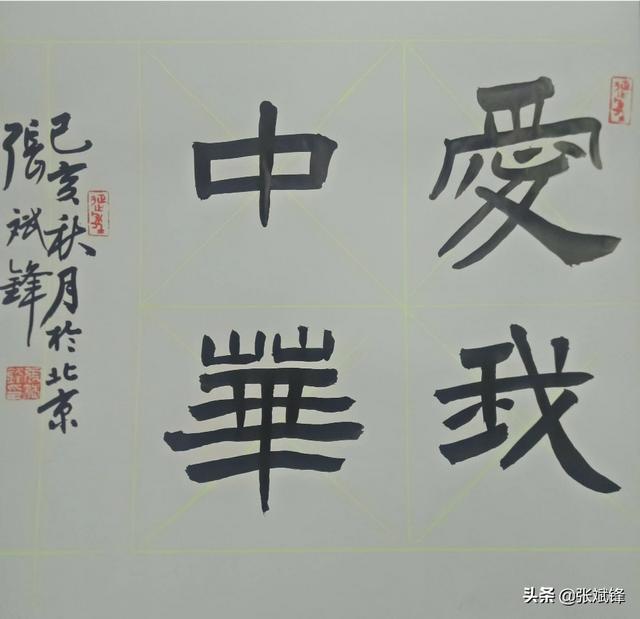 愛我
中華
己亥秋月於北京
張斌鋒
头条 @张斌锋